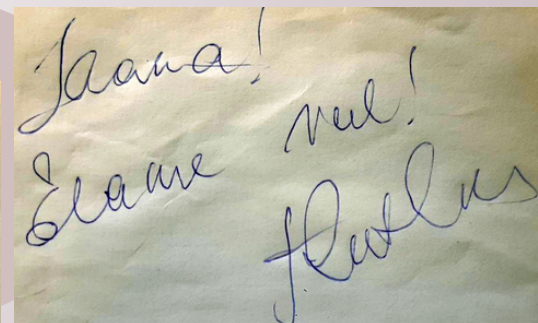 Jaana!
Elame veel!